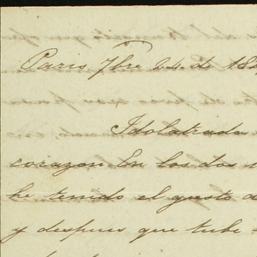 Paris 7bre 24 de 18
Idolatrada
corazon En los dos
he tenido el gusto d
y despues que tube